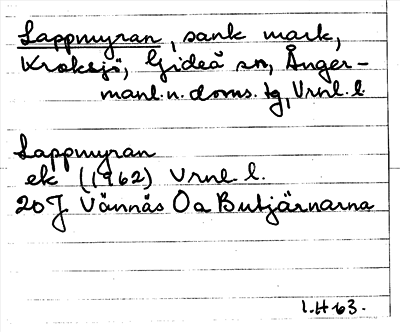 Lappmyran, sank mark,
Kroksjö, Gideå sn, Ånger-
manl. n. doms. tg, Vrnl. l.
Lappmyran
ek (1962) Vrnl l.
20 J Vännäs 0a Butjärnarna
1.H 63.